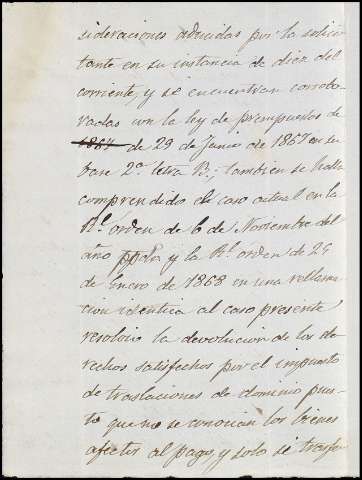 sideraciones aducidas por la solici
tante en su instancia de diez del
corriente, y se encuentran corrobo-
radas con la ley de presupuestos de
1864 de 29 de Junio de 1867 en su
base 2ª letra B.; tambien se halla
comprendido el caso actual en la
Rl orden de 6 de Noviembre del
año ppdo y la Rl orden de 29
de Enero de 1868 en una reclama
cion identica al caso presente
resolvio la devolucion de los de
rechos satisfechos por el impuesto
de traslaciones de dominio pues-
to que no se conocian los bienes
afectos al pago, y solo se trasfe